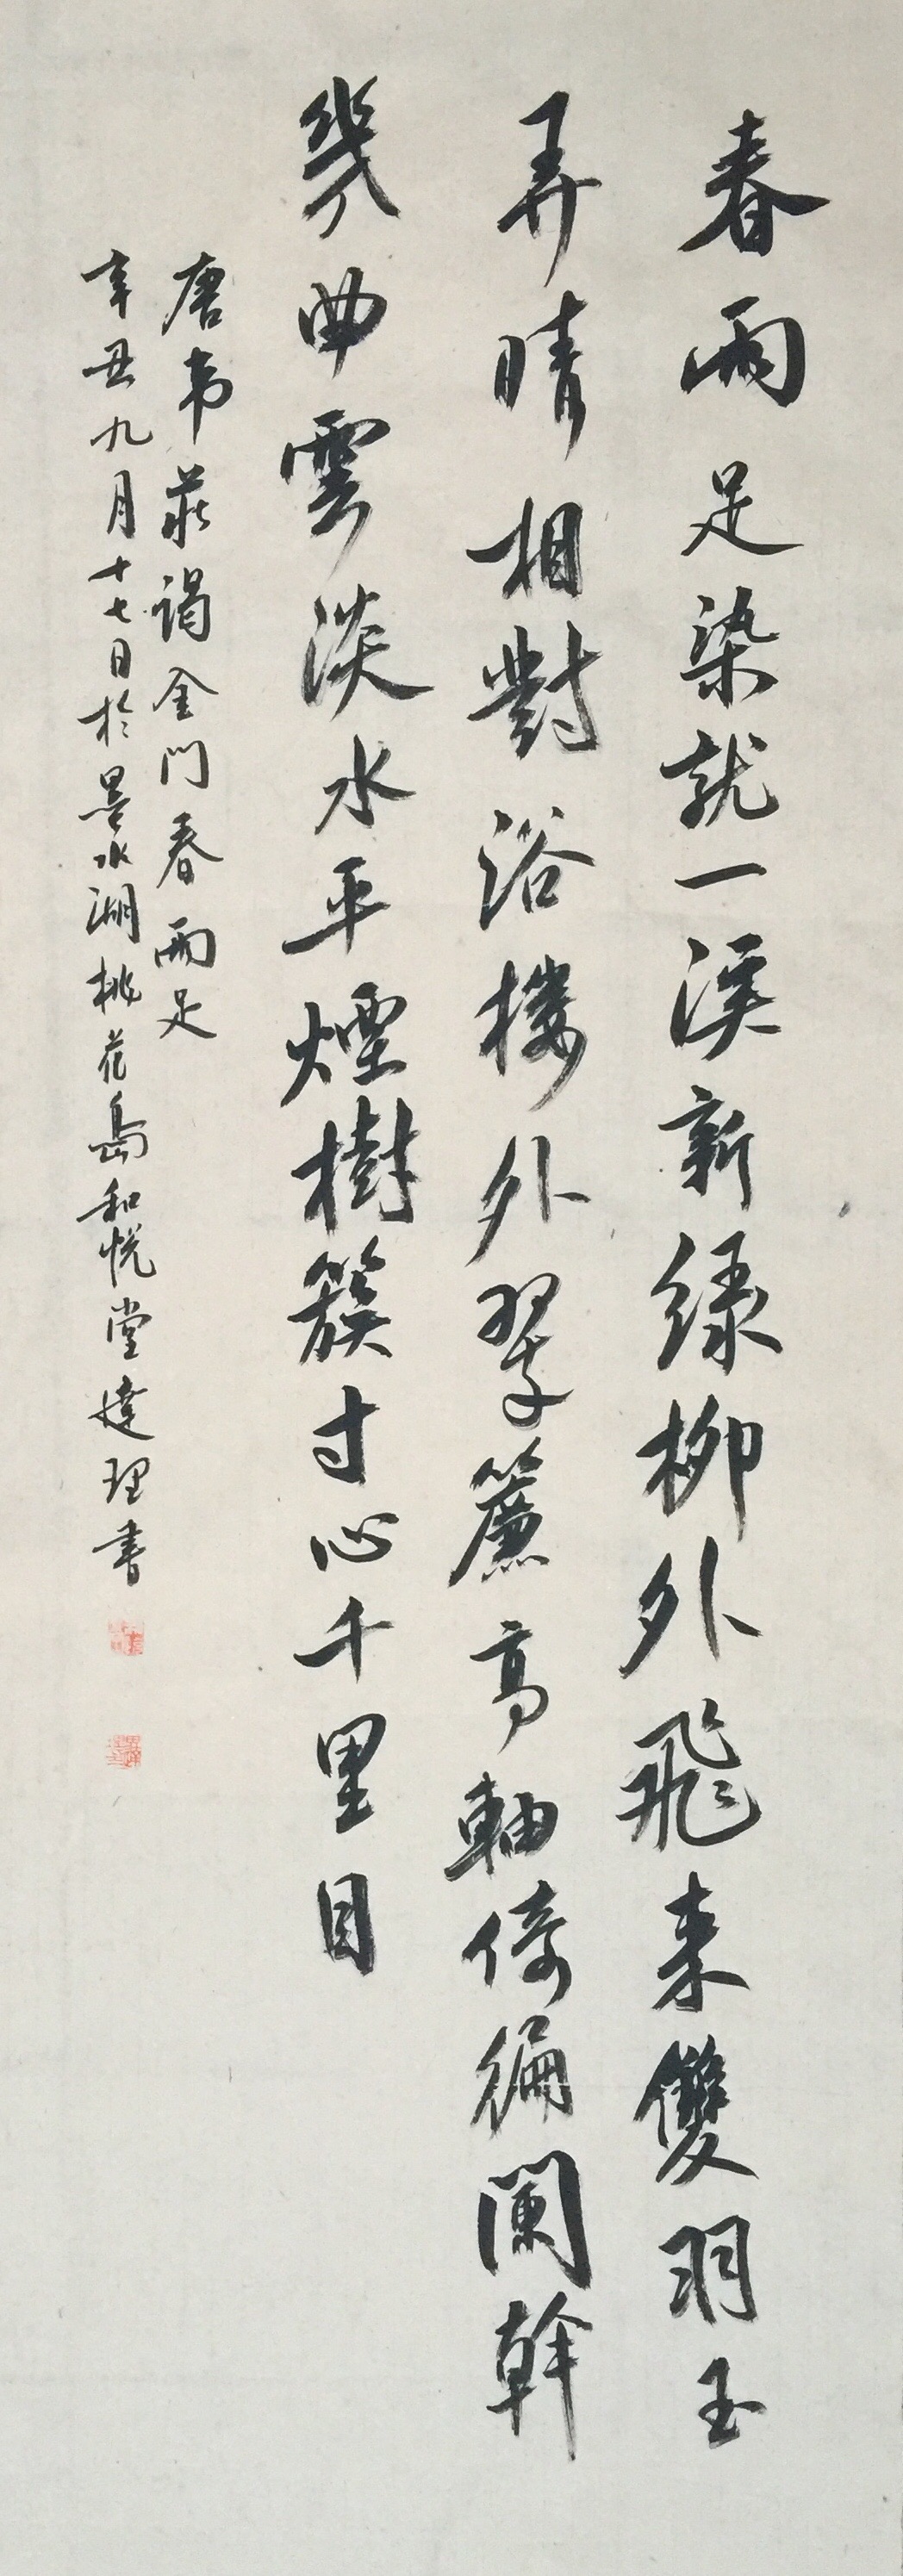 春雨足染就一溪新绿柳外飛来雙羽玉
弄晴相對浴楼外翠簾高軸倚徧闌幹
幾曲雲淡水平煙樹簇寸心千里目
唐韦莊谒金門春雨足
辛丑九月十七日於墨水湖桃花島和悦堂達理書